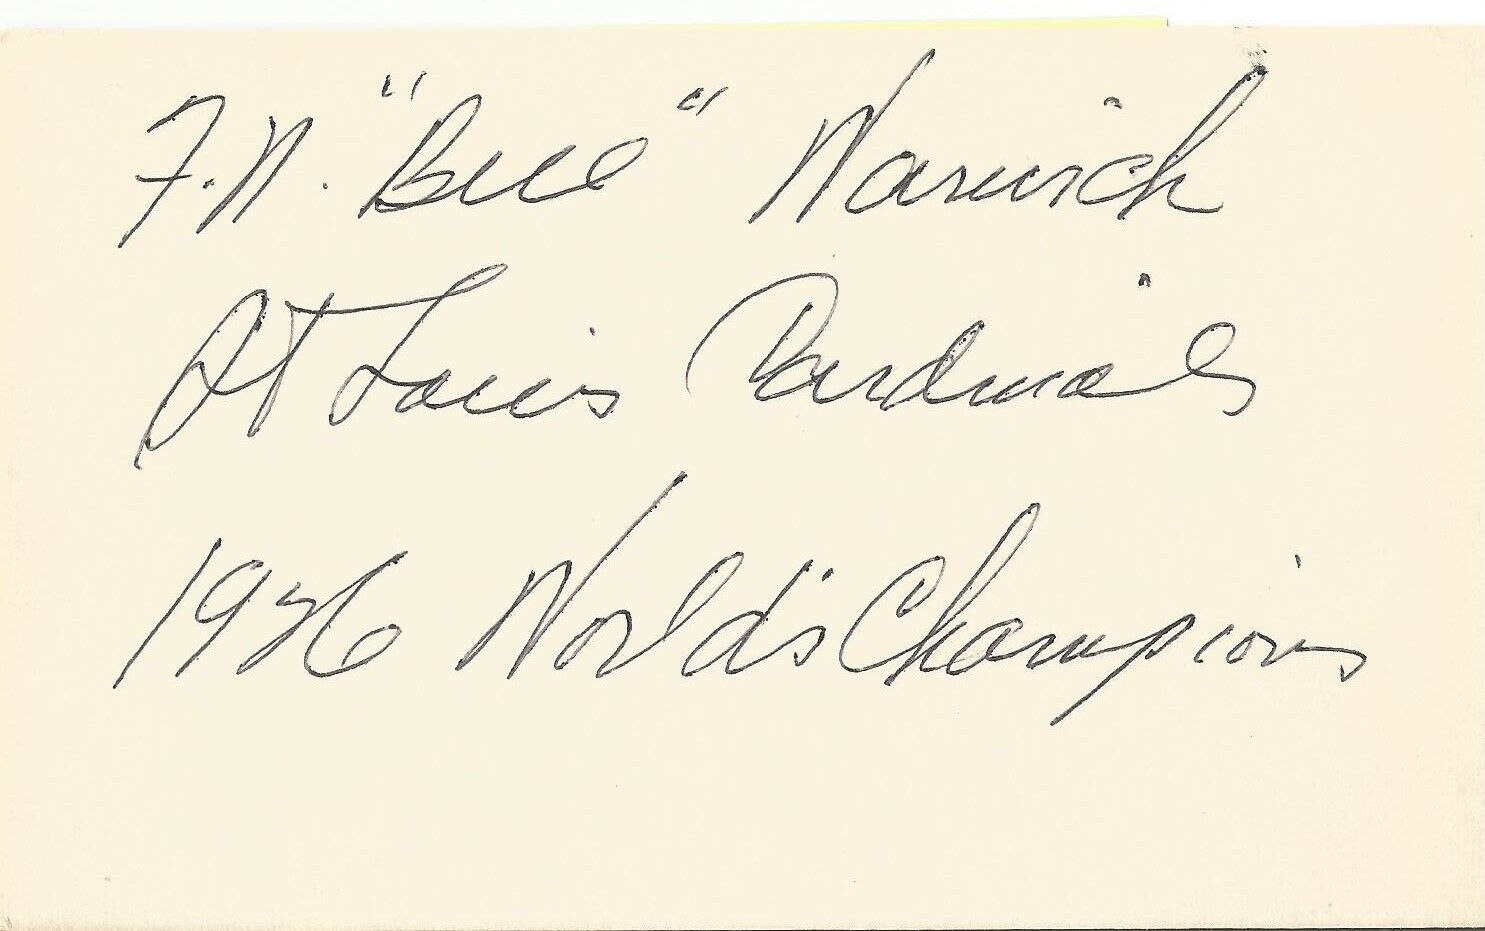 F.N. "Bill" Warwick
St Louis Cardinals
1926 World's Champions